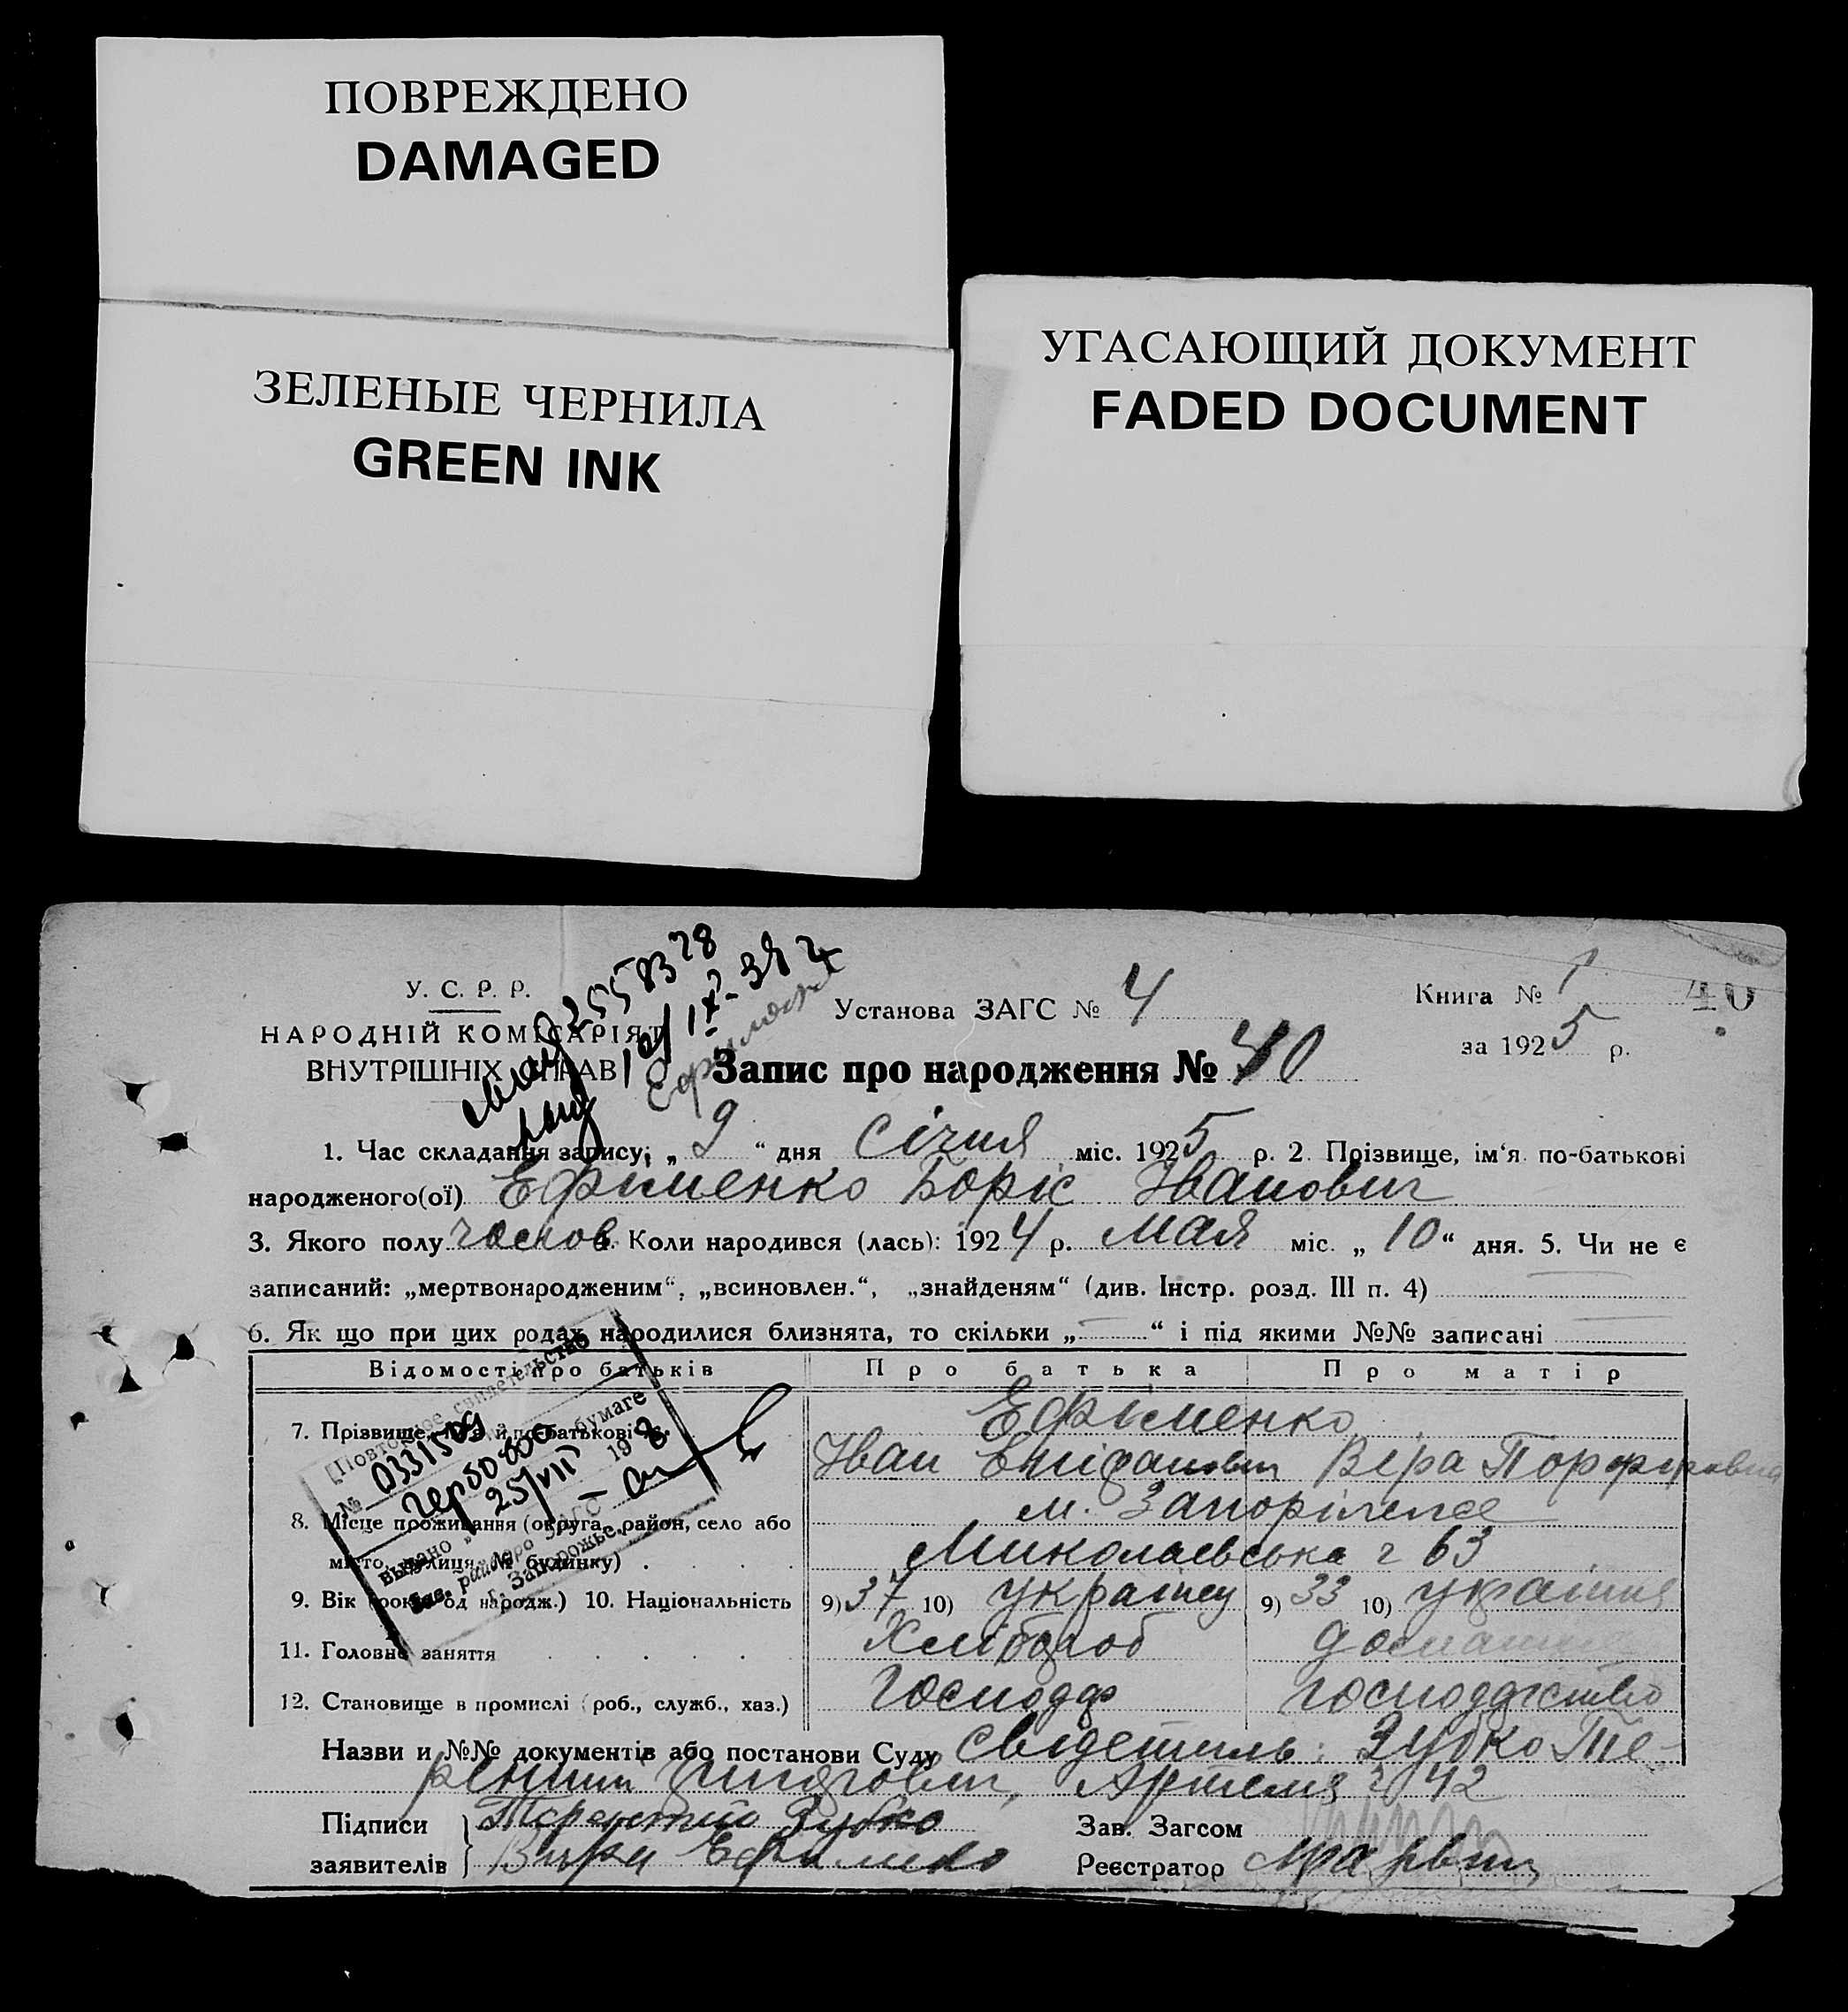 ПОВРЕЖДЕНО
DAMAGED
ЗЕЛЕНЫЕ ЧЕРНИЛА
GREEN INK
УГАСАЮЩИЙ ДОКУМЕНТ
FADED DOCUMENT
У. С. Р. Р.
НАРОДНІЙ КОМІСАРІЯТ
ВНУТРІШНІХ СПРАВ
Установа ЗАГС № 4
Книга № 1
40
за 1925 р.
Запис про народження № 40
1. Час складання запису: „ 9 “ дня Січня міс. 1925 р. 2. Прізвище, ім‘я по-батькові
народженого(ої) Ефіменко Боріс Іванович
3. Якого полу чолов. Коли народився (лась): 1924 р. Мая міс. „ 10 “ дня. 5. Чи не є
записаний: „мертвонародженим“, „всиновлен.“, „знайденям“ (див. Інстр. розд. III п. 4)
6. Як що при цих родах народилися близнята, то скільки „ “ і під якими №№ записані
Відомості про батьків Про батька Про матір
7. Прізвище, ім‘я й по-батькові Ефіменко
Іван Епіфанович Віра Порфировна
8. Місце проживання (округа, район, село або м. Запоріжжє
місто, вулиця, № будинку) Миколаєвська 63
9. Вік (років од народж.) 10. Національність 9) 37 10) українец 9) 33 10) українка
11. Головне заняття Хлібороб домашнє
12. Становище в промислі (роб., служб., хаз.) господар господарство
Повторное свидетельство
№ 0331509
на гербовой бумаге
выдано 25/VII 19
Зав. райбюро ЗАГС
г. Запорожье
Назви и №№ документів або постанови Суду Свідетель: Зубко Те-
рентий Артема 42
Підписи Терентий Зубко Зав. Загсом
заявителів Вира Ефименко Реєстратор